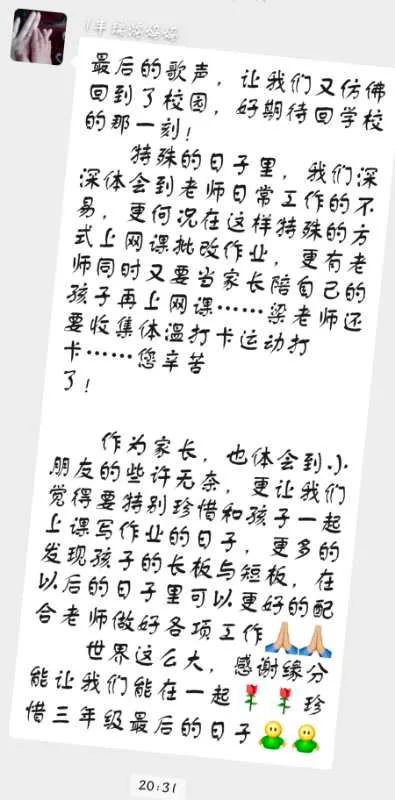 最后的歌声，让我们又仿佛
回到了校园，好期待回学校
的那一刻！
特殊的日子里，我们深
深体会到老师日常工作的不
易，更何况在这样特殊的方
式上网课批改作业，更有老
师同时又要当家长陪自己的
孩子再上网课……梁老师还
要收集体温打卡运动打
卡……您辛苦
了！
作为家长，也体会到小
朋友的些许无奈，更让我们
觉得要特别珍惜和孩子一起
上课写作业的日子，更多的
发现孩子的长板与短板，在
以后的日子里可以更好的配
合老师做好各项工作🙏🙏
世界这么大，感谢缘分
能让我们能在一起🌹🌹珍
惜三年级最后的日子
20:31